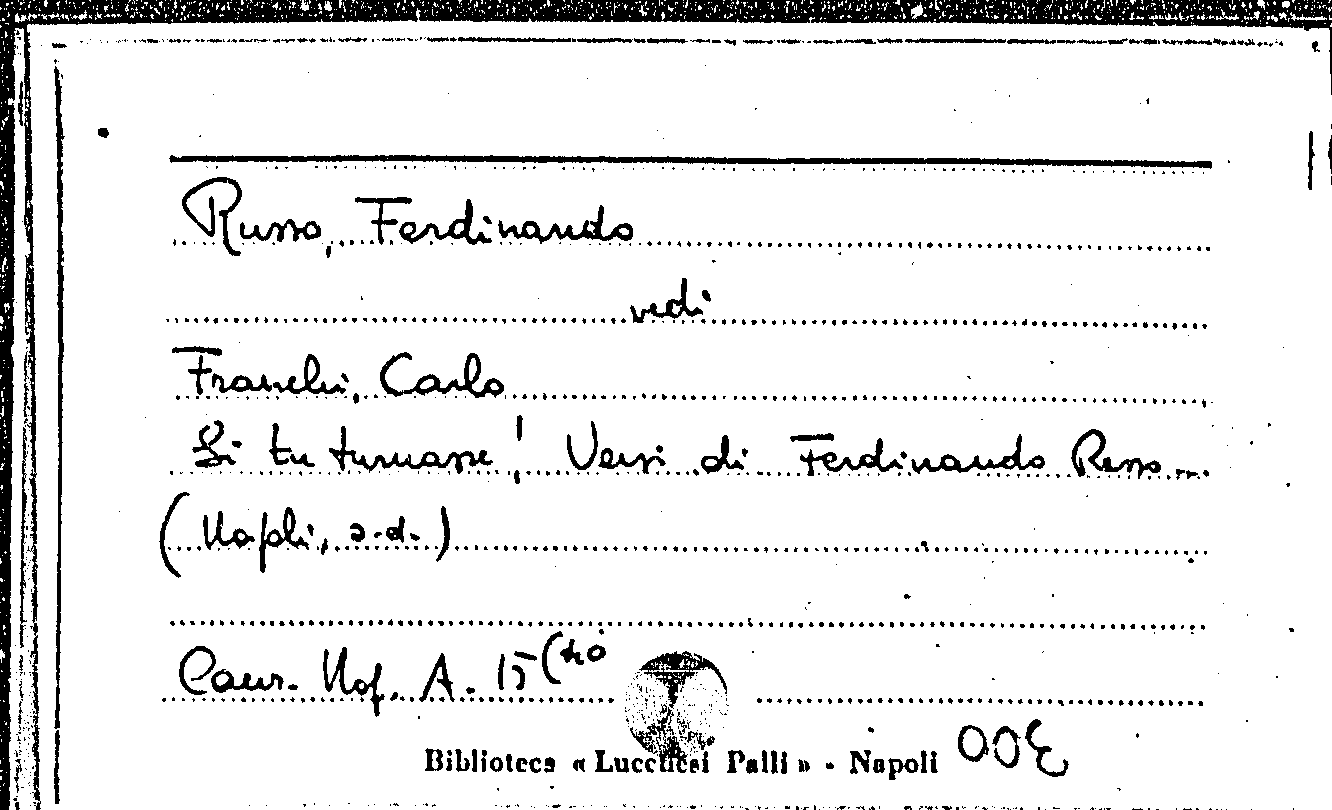 Russo, Ferdinando
vedi
Franchi, Carlo
Si tu turnasse! Versi di Ferdinando Russo...
(Napoli, s.d.)
Canz. Nap. A. 15 (
Biblioteca « Lucchesi Palli » - Napoli 300